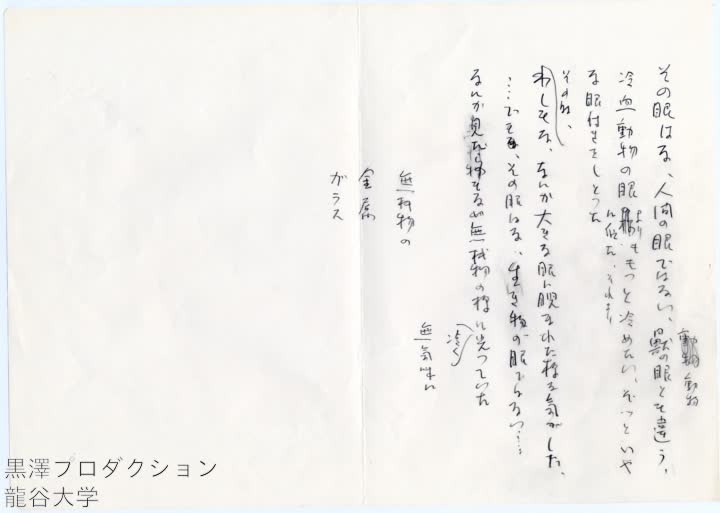 その眼はな、人間の眼ではない、獣の眼とも違う、
動物 動物
冷血動物の眼よりももっと冷めたい、ぞっといや
に似た、それより
な眼付きをしとった
その時、
わしもな、なんか大きな眼に睨まれた様な気がした、
……でもな、その眼はな、生き物の眼でない……
なんか見た物もない無機物の様に光っていた
冷く
無気味に
無機物の
金属
ガラス
黒澤プロダクション
龍谷大学